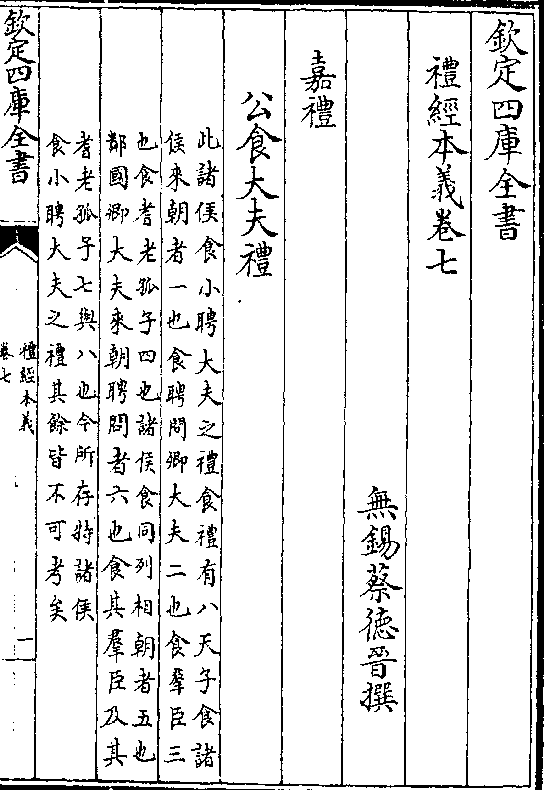 欽定四庫全書
禮經本義卷七
無錫蔡德晉撰
嘉禮
公食大夫禮
此諸侯食小聘大夫之禮食禮有八天子食諸
侯來朝者一也食聘問卿大夫二也食羣臣三
也食耆老孤子四也諸侯食同列相朝者五也
鄰國卿大夫來朝聘問者六也食其羣臣及其
耆老孤子七與八也今所存特諸侯
食小聘大夫之禮其餘皆不可考矣
欽定四庫全書
禮經本義
卷七
一